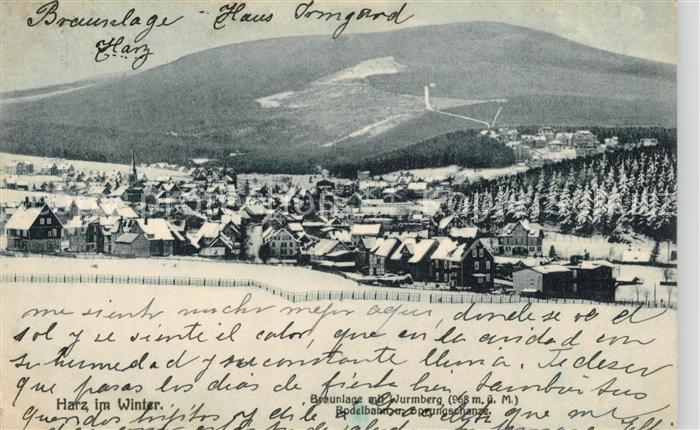 Braunlage - Haus Irmgard
Harz
me siento mucho mejor aqui, donde se ve el
sol y se siente el calor, que en la ciudad con
su humedad y su constante lluvia. Te deseo
que pases los dias de fiesta bien tambien tus
Harz im Winter.
Braunlage mit Wurmberg (968 m. ü. M.)
Rodelbahn u. Sprungschanze.
queridos hijitos y dile a que me